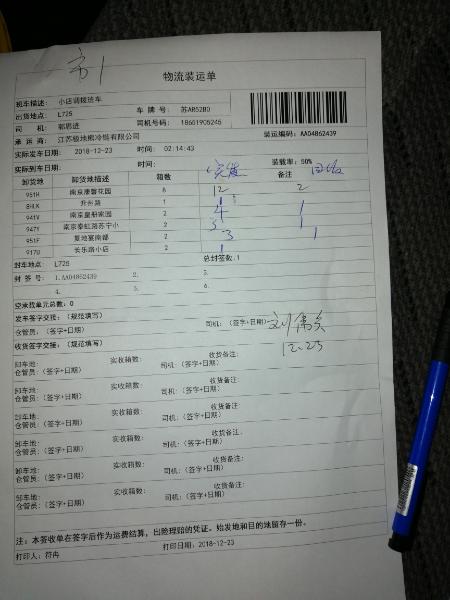 物流装运单
机车描述: 小店调拨班车
出货地点: L725 车 牌 号: 苏AR52B0
司 机: 郭思进 司机号码: 18661905245
承 运 商: 江苏极地熊冷链有限公司 装运编码: AA04862439
实际发车日期: 2018-12-23 时间: 02:14:43
实际到车日期: 时间: 装载率: 50%
卸货地 卸货地描述 箱数 备注
951H 南京康馨花园 8 12 2
8HLX 升州路 1 1
941V 南京皇册家园 2 4 1
947Y 南京泰虹路苏宁小 2 3 1
951F 复地宴南都 2 3 1
917U 长乐路小店 2 1
封车地点: L725 总封签数:1
封 签 号: 1.AA04862439 2. 3.
4. 5. 6.
空承载单元总数: 0
发车签字交接: (规范填写)
仓管员: (签字+日期) 司机: (签字+日期)
12.23
收货签字交接: (规范填写)
卸车地: 实收箱数: 收货备注:
仓管员: (签字+日期) 司机: (签字+日期)
卸车地: 实收箱数: 收货备注:
仓管员: (签字+日期) 司机: (签字+日期)
卸车地: 实收箱数: 收货备注:
仓管员: (签字+日期) 司机: (签字+日期)
卸车地: 实收箱数: 收货备注:
仓管员: (签字+日期) 司机: (签字+日期)
卸车地: 实收箱数: 收货备注:
仓管员: (签字+日期) 司机: (签字+日期)
卸车地: 实收箱数: 收货备注:
仓管员: (签字+日期) 司机: (签字+日期)
注: 本签收单在签字后作为运费结算, 出险理赔的凭证。始发地和目的地留存一份。
打印人: 符冉 打印日期: 2018-12-23